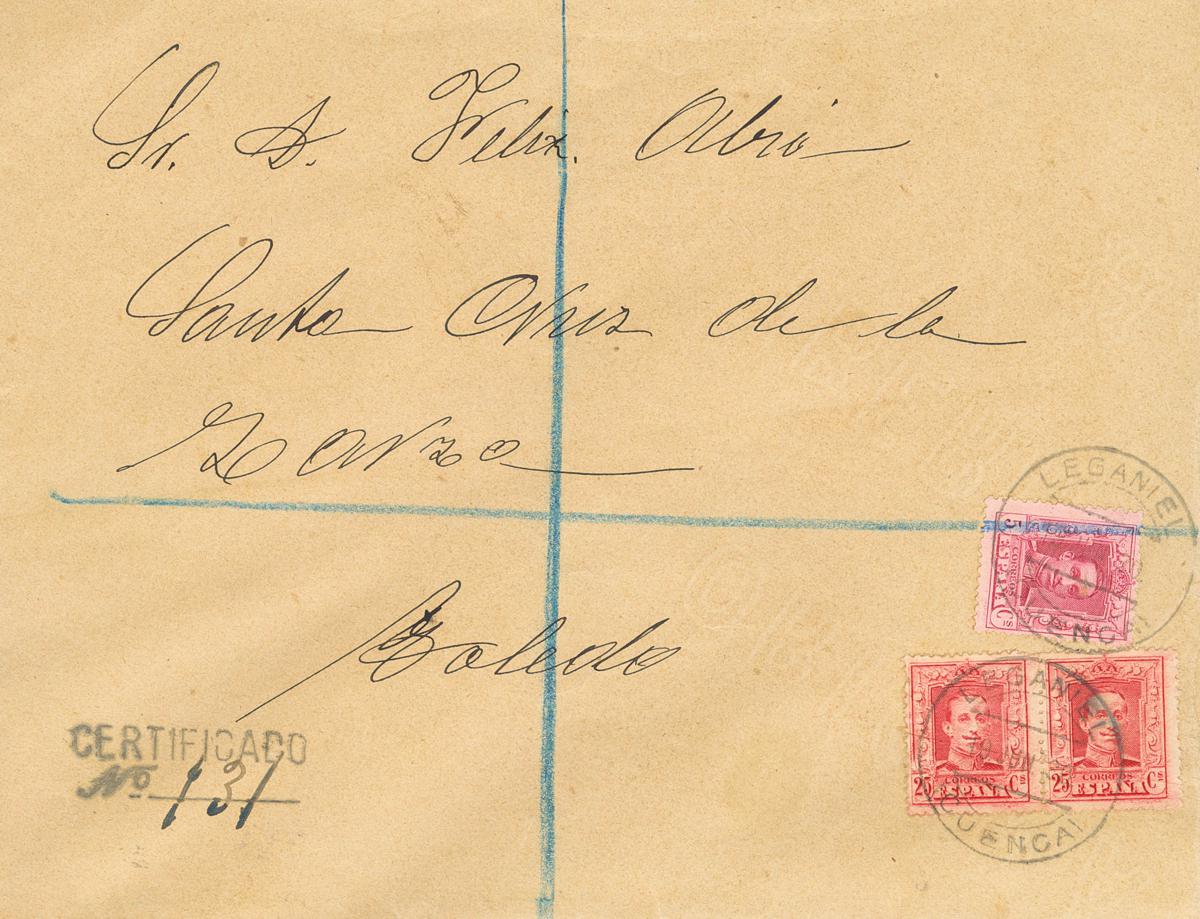 Sr. D. Felix Abri
Santa Cruz de la
Zarza
Toledo
CERTIFICADO
Nº 131
LEGANIEL
5 Cs
CORREOS
ESPAÑA
LEGANIEL
CUENCA
25 Cs
CORREOS
ESPAÑA
25 Cs
CORREOS
ESPAÑA